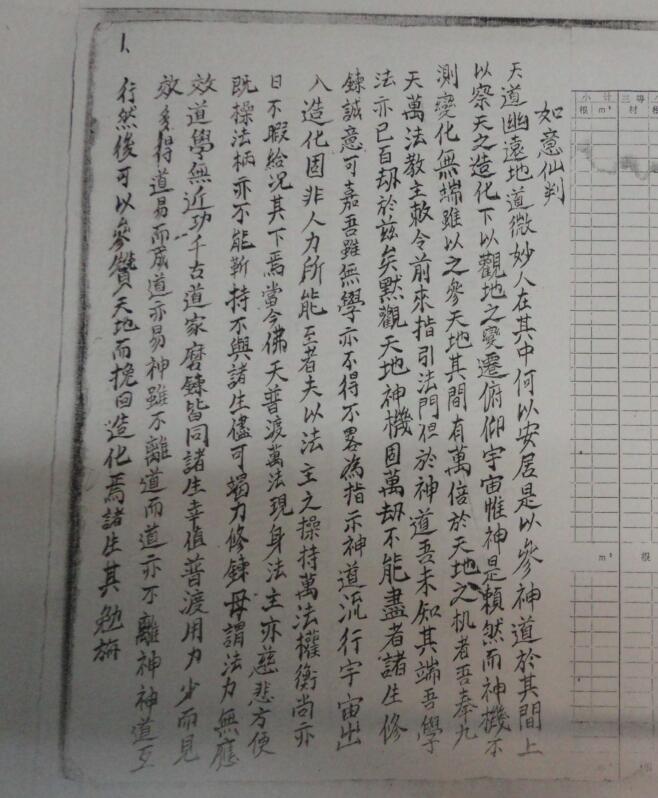 1、
如意仙判
天道幽遠地道微妙人在其中何以安居是以參神道於其間上
以察天之造化下以觀地之變遷俯仰宇宙惟神是賴然而神機不
測變化無端雖以之參天地其間有萬倍於天地之机者吾奉九
天萬法教主敕令前來指引法門但於神道吾未知其端吾學
法亦已百刼於茲矣默觀天地神機固萬刼不能盡者諸生修
鍊誠意可嘉吾雖無學亦不得不畧為指示神道流行宇宙出
入造化固非人力所能至者夫以法主之操持萬法權衡尚亦
日不暇給況其下焉當今佛天普渡萬法現身法主亦慈悲方便
既操法柄亦不能靳持不與諸生儘可竭力修鍊毋謂法力無應
效道學無近功千古道家磨鍊皆同諸生幸值普渡用力少而見
效多得道易而成道亦易神雖不離道而道亦不離神神道互
行然後可以參贊天地而挽回造化焉諸生其勉旃
小計
三等
根
m³
材
根
m³
根
m³